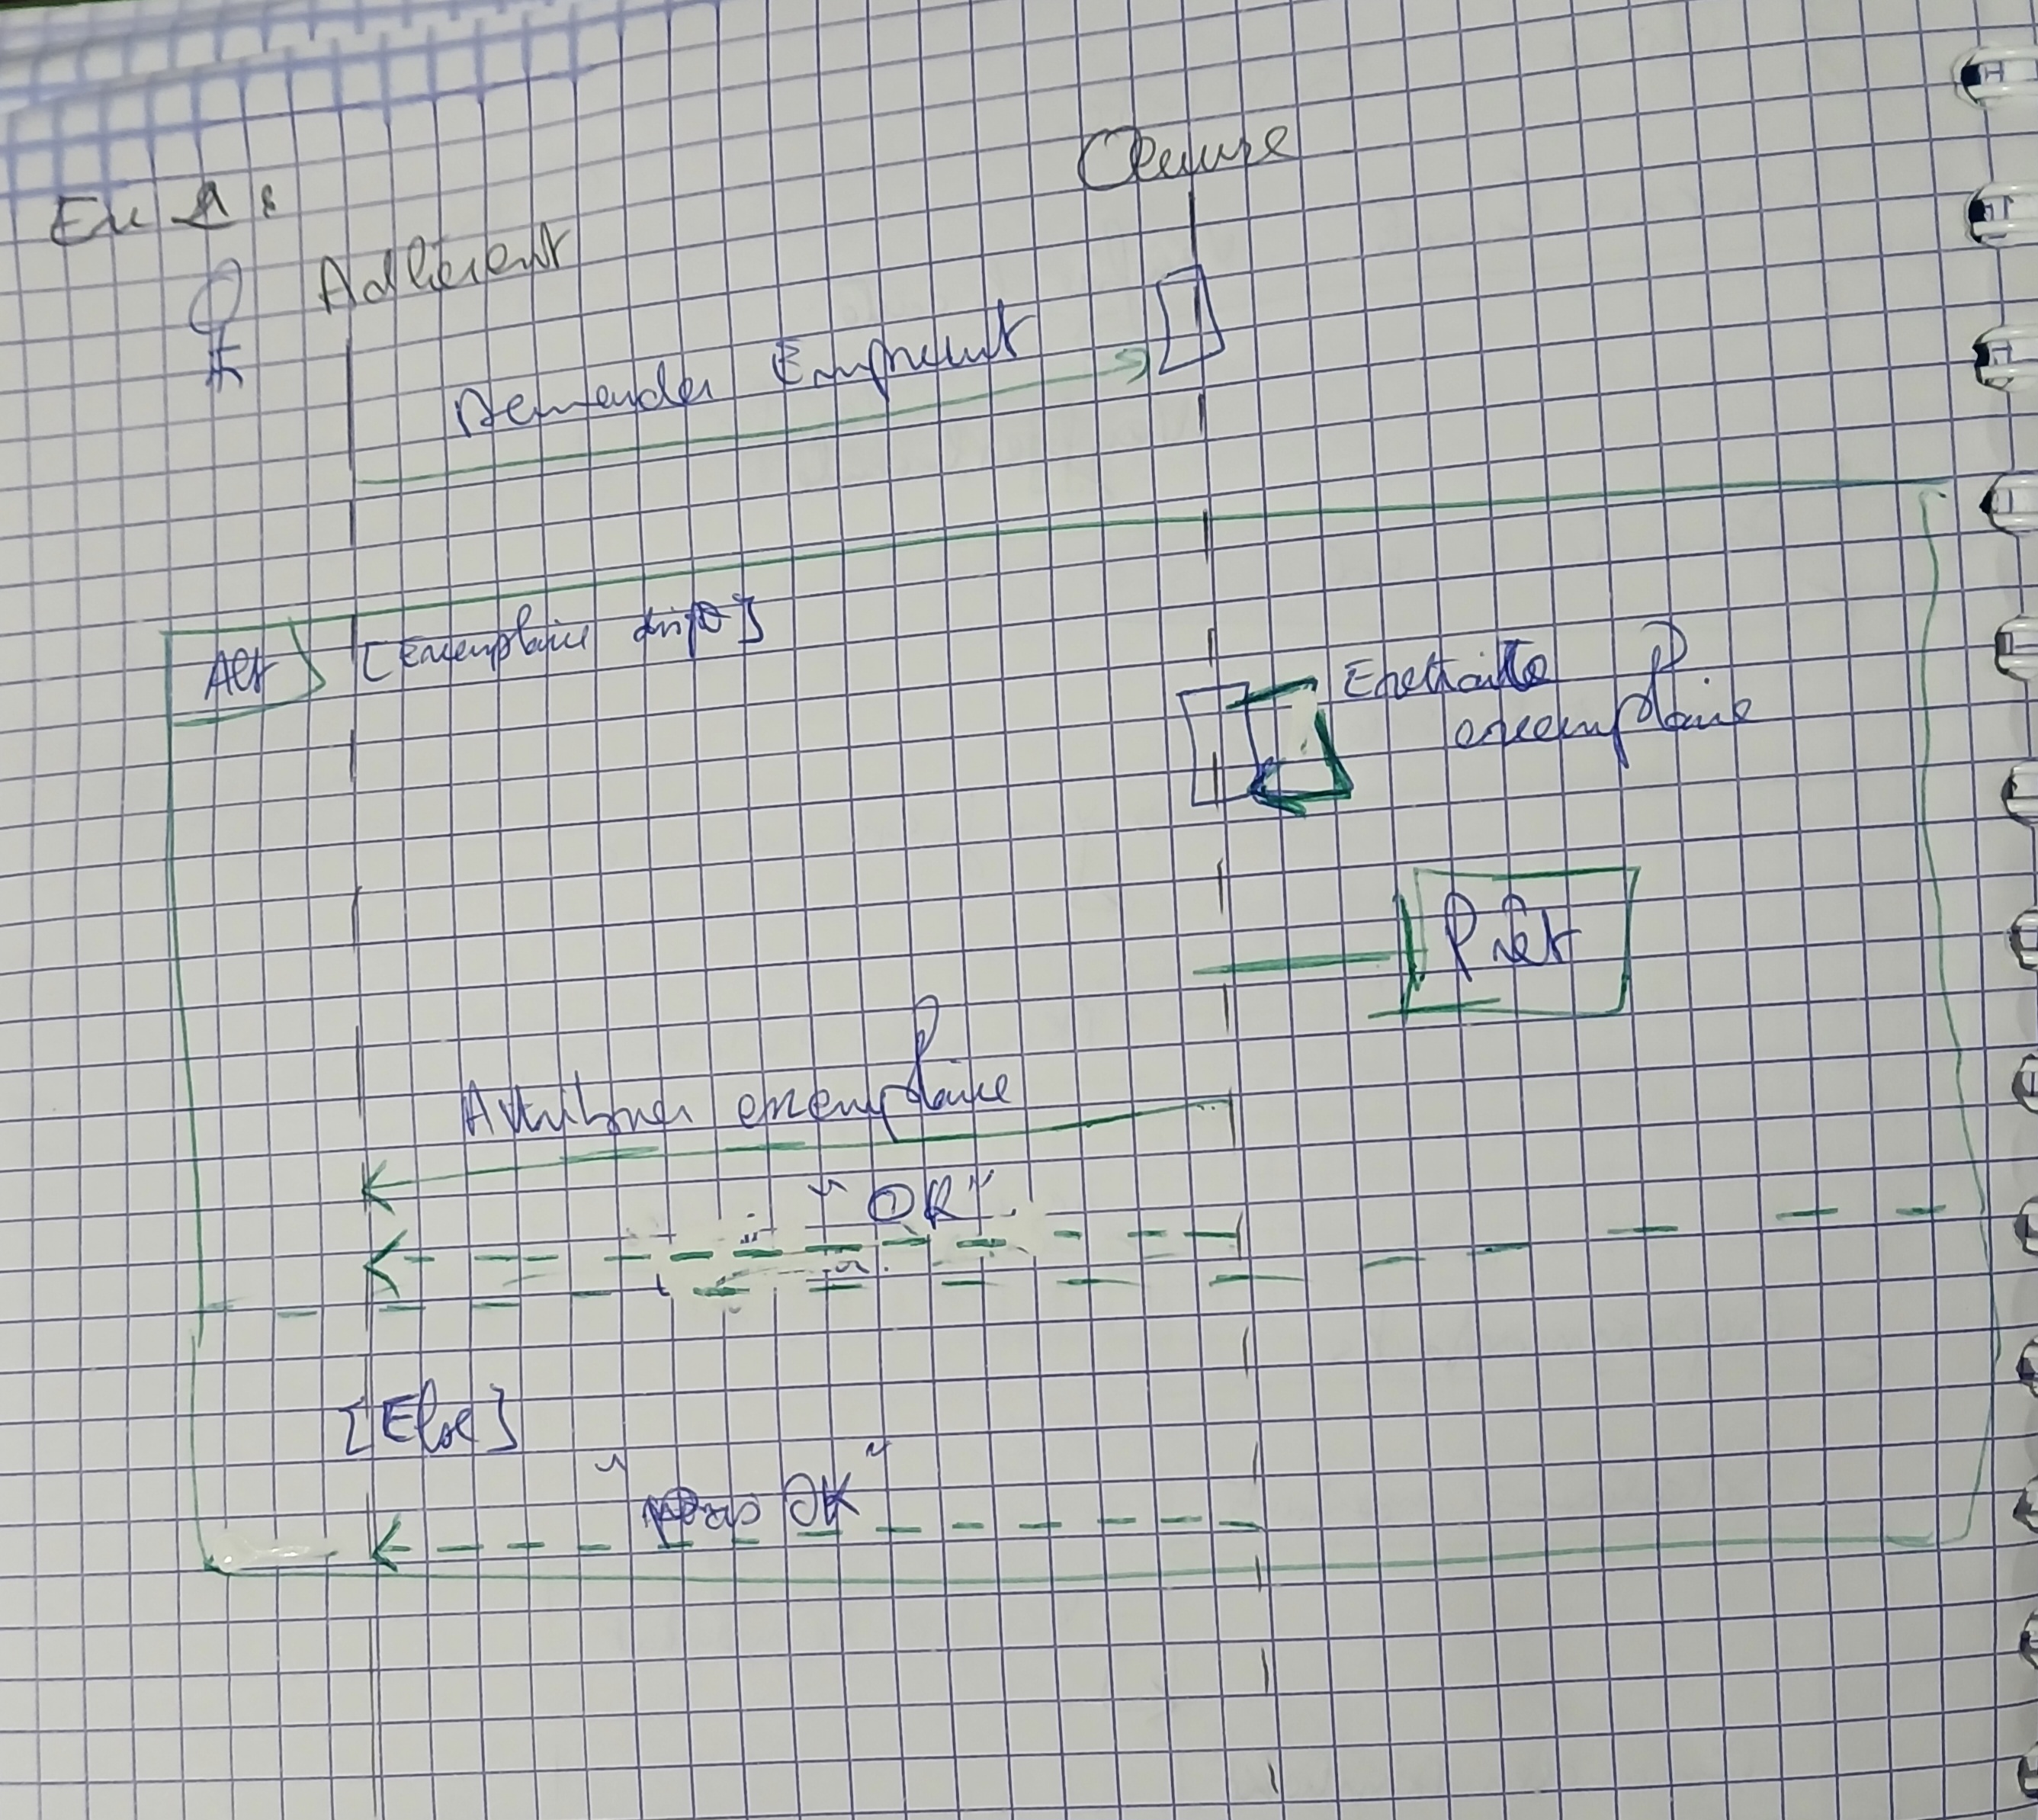 Ex 1 :
Oeuvre
Adhérent
Demander Emprunt
Alt [Exemplaire dispo]
Extraite
exemplaire
Prêt
Attribuer exemplaire
"OK"
[Else]
"Pas OK"